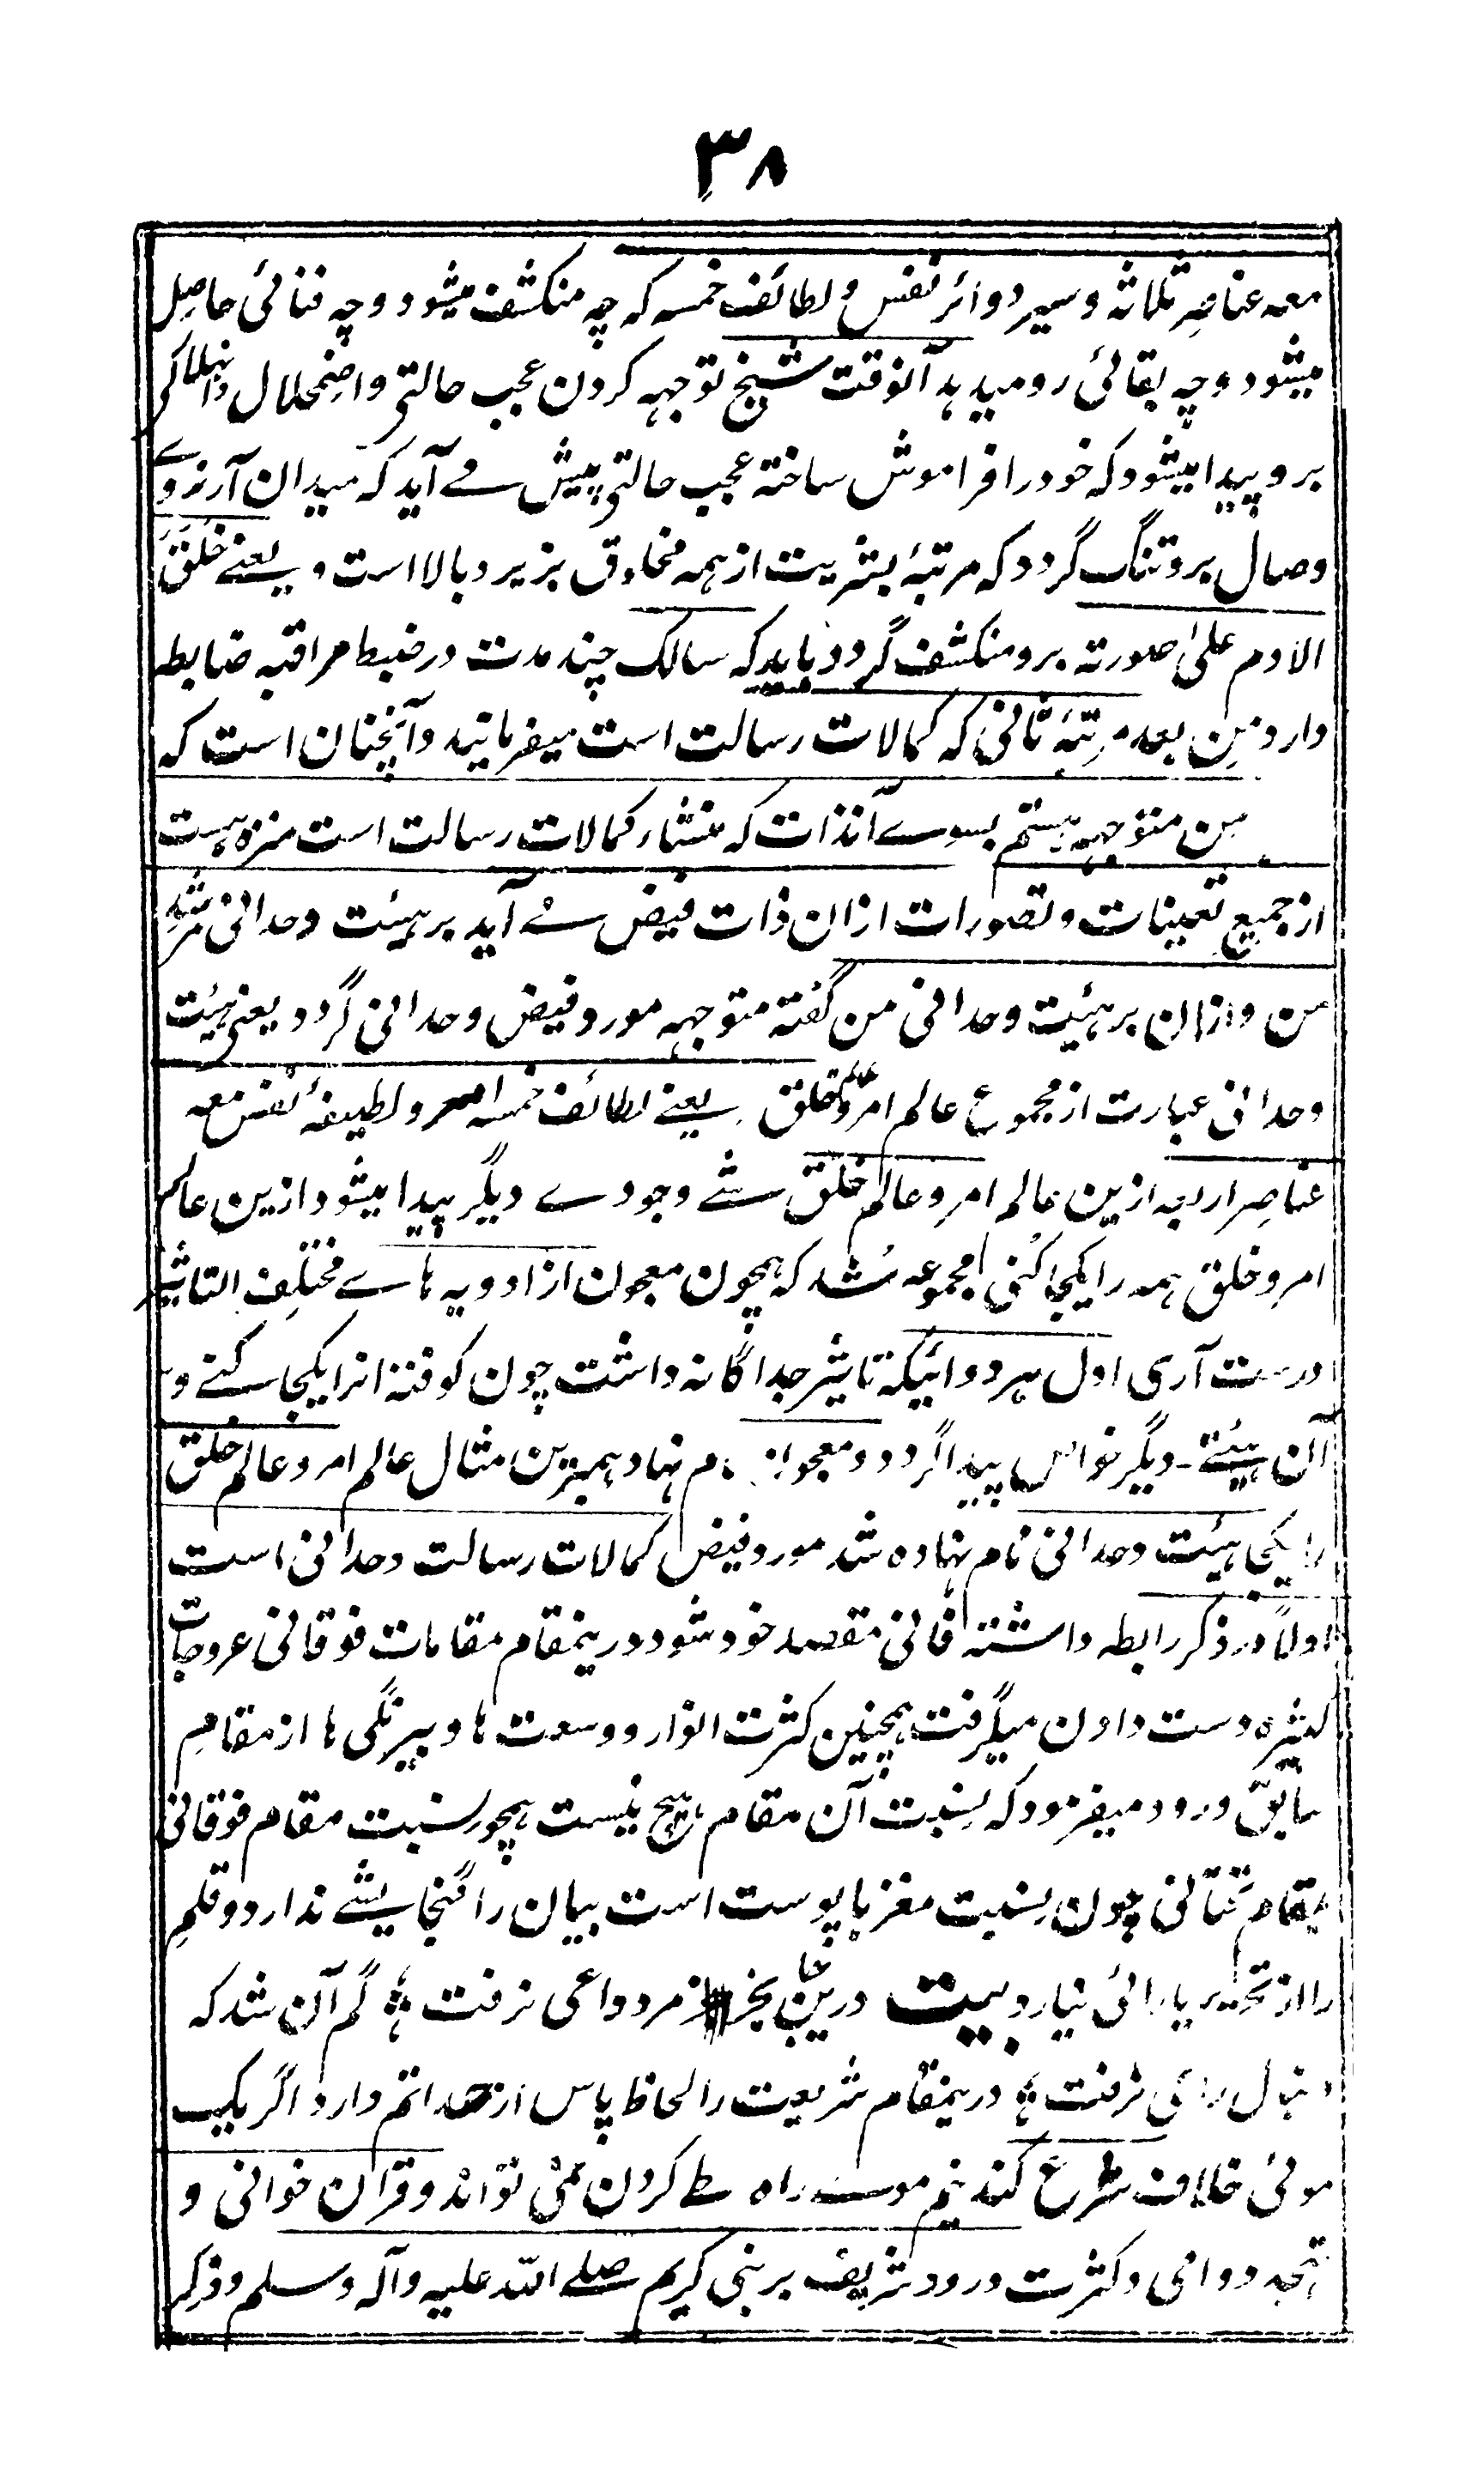 ۳۸
معہ عناصرِ ثلاثہ و سیر دوائر نفس و لطائف خمسہ کہ چہ منکشف میشود و چہ فنائی حاصل
میشود و چہ بقائی رو میدہد آنوقت شیخ توجہہ کردن عجب حالتی و اضمحلال و انہلاکی
برو پیدا میشود کہ خود را فراموش ساختہ عجب حالتی پیش مے آید کہ میدان آرزوے
وصال برو تنگ گردد کہ مرتبۂ بشریت از ہمہ مخلوق بزیر و بالا است و یعنے خَلَقَ
الادم علیٰ صورتہ برو منکشف گردد باید کہ سالک چند مدت در ضبط مراقبہ ضابطہ
دارد من بعد مرتبۂ ثانی کہ کمالات رسالت است میفرمایند و آنچنان است کہ
من متوجہہ ہستم بسوے آنذات کہ منشاء کمالات رسالت است منزہ ہست
از جمیع تعینات و تصورات ازان ذات فیض مے آید بر ہیئت وحدانی مرشدِ
من و ازان بر ہئیت وحدانی من گفتہ متوجہہ مورد فیض وحدانی گردد یعنی ہیئت
وحدانی عبارت از مجموع عالم امر و عالم خلق یعنے لطائف خمسہ امر و لطیفۂ نفس معہ
عناصر اربعہ ازین عالم امر و عالم خلق شے وجودے دیگر پیدا میشود ازین عالم
امر و خلق ہمہ را یکجا کنی مجموعہ شد کہ ہمچون معجون از ادویہ ہاے مختلف التاثیر
درست آری اول ہر دوائیکہ تاثیر جداگانہ داشت چون کوفتہ انرا یکجا کنے و
آن ہیئتے دیگر خواص پیدا گردد و معجون نام نہاد ہمبرین مثال عالم امر و عالم خلق
را یکجا ہیئت وحدانی نام نہادہ شد مورد فیض کمالات رسالت وحدانی است
اولاً در ذکر رابطہ داشتہ فانی مقصد خود شود درینمقام مقامات فوقانی عروجات
کثیرہ دست دادن میگرفت ہمچنین کثرت انوار و وسعت ہا و بیرنگی ہا از مقامِ
سابق ورود میفرمود کہ بنسبت آن مقام ہیچ نیست ہمچو نسبت مقام فوقانی
بمقام تحتانی چون بنسبت مغز با پوست است بیان را گنجایشے ندارد و قلمِ
را از تحریر یارائی نیارد بیت درین بجز مرد داعی نرفت ؛ گم آن شد کہ
دنبال راعی نرفت ؛ درینمقام شریعت را لحاظ پاس از حد اتم دارد اگر یک
موئی خلاف شرع کند نیم موے راہ طے کردن نمی تواند و قرآن خوانی و
تہجد دوامی و کثرت درود شریف بر نبی کریم صلے اللہ علیہ وآلہ وسلم و ذکر